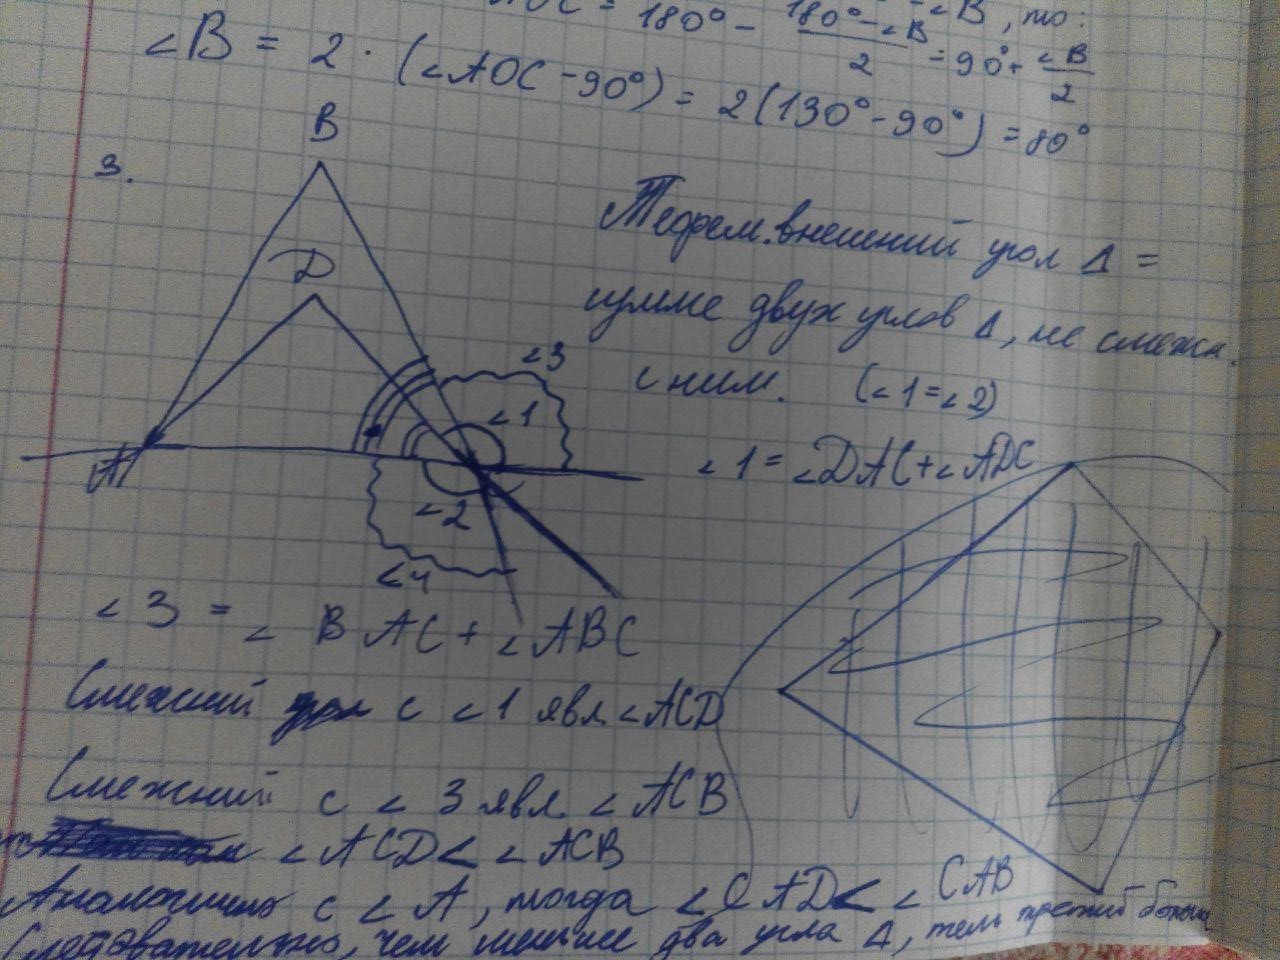 AOC = 180° - (180° - ∠B)/2 = 90° + ∠B/2
∠B, то:
∠B = 2 · (∠AOC - 90°) = 2(130° - 90°) = 80°
3.
B
D
A
∠3
∠1
∠2
∠4
Теорем. внешний угол Δ =
сумме двух углов Δ, не смежн.
с ним. (∠1 = ∠2)
∠1 = ∠DAC + ∠ADC
∠3 = ∠BAC + ∠ABC
Смежный угол с ∠1 явл ∠ACD
Смежный с ∠3 явл. ∠ACB
∠ACD < ∠ACB
Аналогично с ∠A, тогда ∠CAD < ∠CAB
Следовательно, чем меньше два угла Δ, тем третий больше